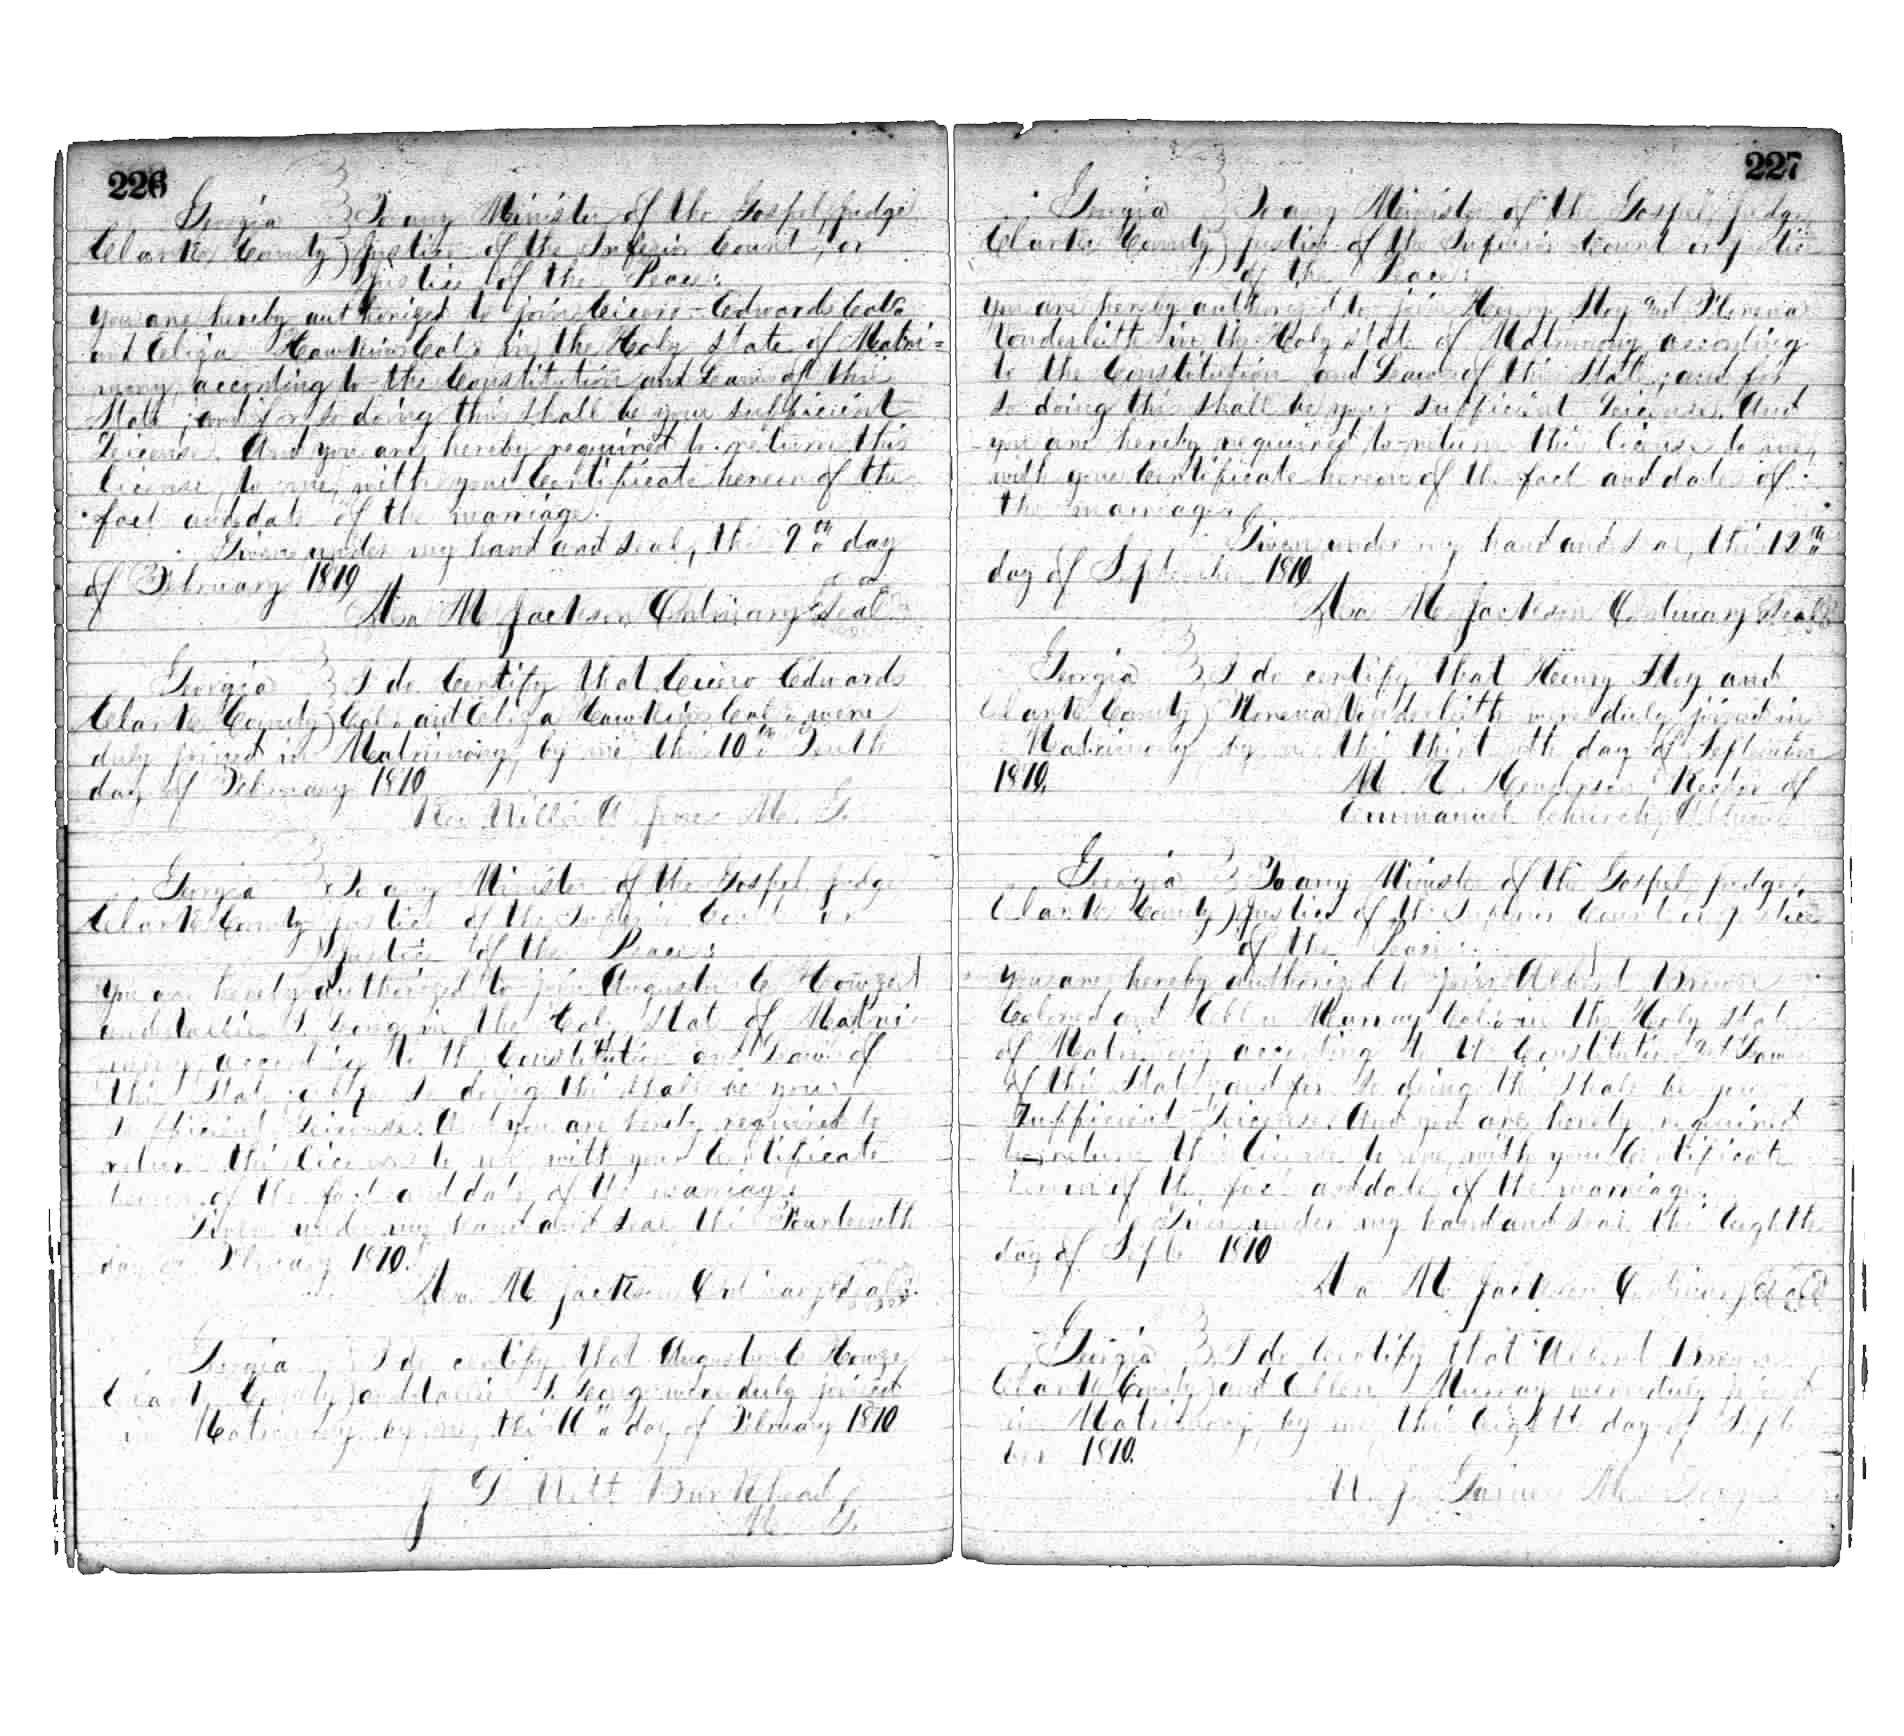 226
Georgia To any Minister of the Gospel, Judge
Clarke County Justice of the Inferior Court, or
Justice of the Peace:
You are hereby authorized to join Cicero Edwards Col.
and Eliza Hawkins Col. in the Holy State of Matri=
mony, according to the Constitution and Laws of this
State; and for so doing this shall be your sufficient
License. And you are hereby required to return this
license to me, with your Certificate hereon of the
fact and date of the marriage.
Given under my hand and seal, this 9th day
of February 1870
Asa M Jackson Ordinary Seal
Georgia I do Certify that Cicero Edwards
Clarke County Col. and Eliza Hawkins Col. were
duly joined in Matrimony by me this 10th Tenth
day of February 1870
Rev Willis A Jones M. G.
Georgia To any Minister of the Gospel, Judge
Clarke County Justice of the Inferior Court or
Justice of the Peace:
You are hereby authorized to join Augustus C Howze
and S. Long in the Holy State of Matri
mony according to the Constitution and Laws of
this State; and for so doing this shall be your
sufficient License. And you are hereby required to
return this license to me with your Certificate
hereon of the fact and date of the marriage.
Given under my hand and seal this Fourteenth
day of February 1870.
Asa M Jackson Ordinary Seal
Georgia I do certify that Augustus C Howze
Clarke County and S Long were duly joined
in Matrimony by me, this day of February 1870
G. Burkhead
M G.
227
Georgia To any Minister of the Gospel, Judge,
Clarke County Justice of the Inferior Court or Justice
of the Peace:
You are hereby authorized to join Henry Hoy and
in the Holy state of Matrimony according
to the Constitution and Laws of this State; and for
so doing this shall be your sufficient License. And
you are hereby required to return this license to me,
with your Certificate hereon of the fact and date of
the marriage.
Given under my hand and seal, this 12th
day of September 1870.
Asa M Jackson Ordinary Seal
Georgia I do certify that Henry Hoy and
Clarke County were duly joined in
Matrimony by me this day of September
1870. M. H. Henderson Rector of
Emmanuel Church, Athens
Georgia To any Minister of the Gospel, Judge,
Clarke County Justice of the Inferior Court or Justice
of the Peace:
You are hereby authorized to join Albert Brewer
Colored and Ellen Murray Col. in the Holy State
of Matrimony according to the Constitution and Laws
of this State, and for so doing this shall be your
sufficient License. And you are hereby required
to return this license to me, with your Certificate
hereon of the fact and date of the marriage.
Given under my hand and seal this Eighth
day of Septr 1870
Asa M Jackson Ordinary Seal
Georgia I do Certify that Albert Brewer
Clarke County and Ellen Murray were duly joined
in Matrimony by me this Eighth day of Septem
ber 1870.
J. Turner